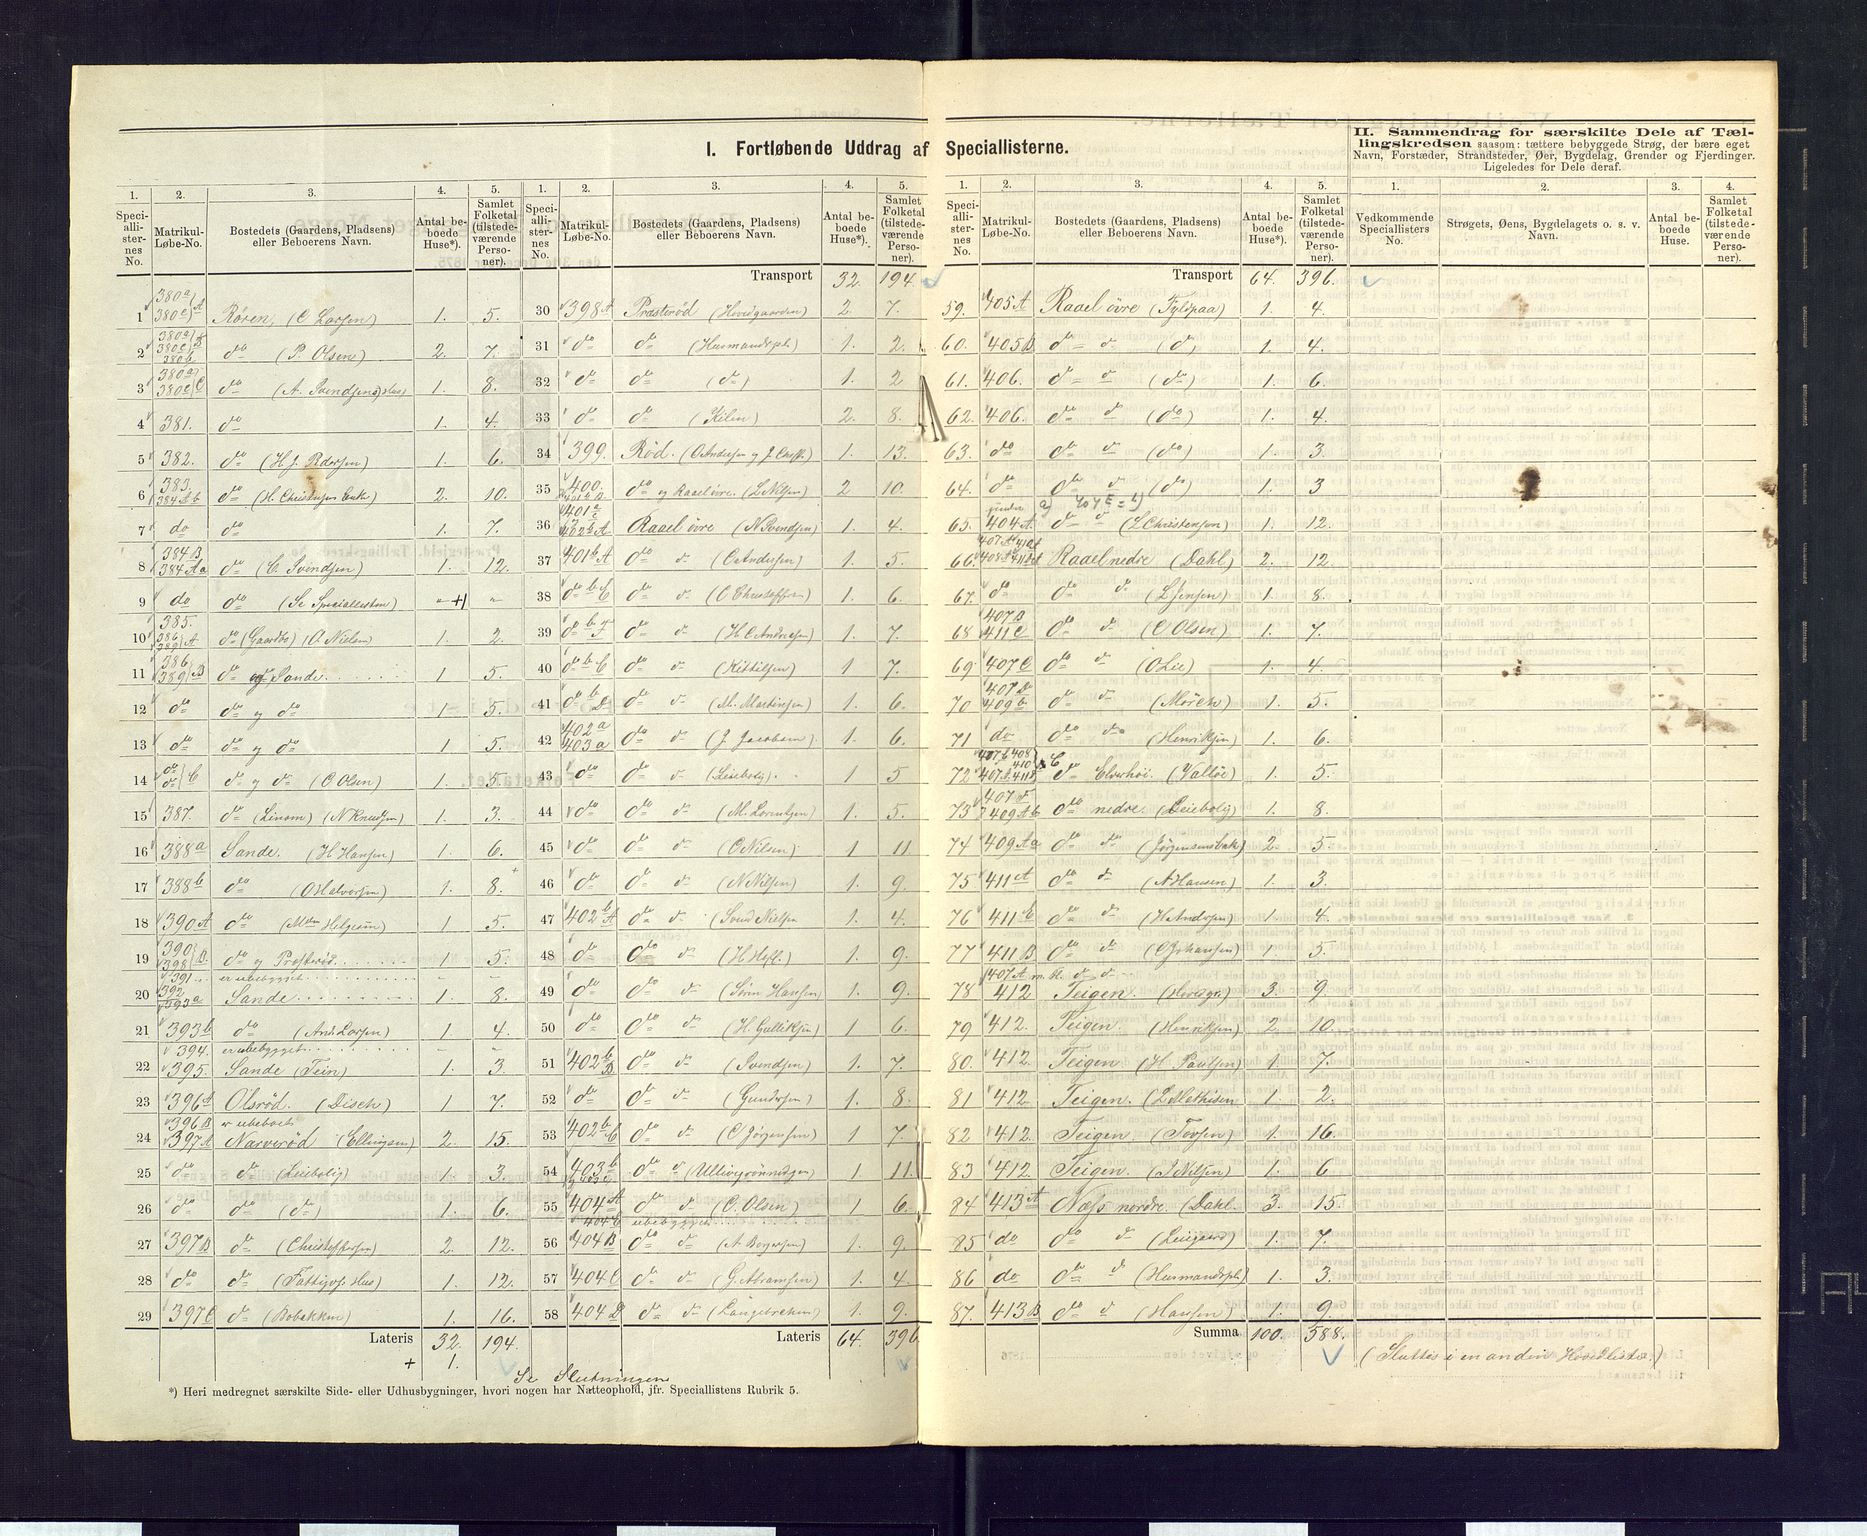 I. Fortløbende Uddrag af Speciallisterne.
II. Sammendrag for særskilte Dele af Tæl-
lingskredsen saasom: tættere bebyggede Strøg, der bære eget
Navn, Forstæder, Strandsteder, Øer, Bygdelag, Grender og Fjerdinger.
Ligeledes for Dele deraf.
1. 2. 3. 4. 5.
Speci-alli-ster-nes No. Matrikul-Løbe-No. Bostedets (Gaardens, Pladsens) eller Beboerens Navn. Antal be-boede Huse*). Samlet Folketal (tilstede-værende Perso-ner).
1 380a 380c A Røren, (C Larsen) 1. 5.
2 380a 380c B 380b do (P. Olsen) 2. 7.
3 380a 380c C do (A. Svendsens Hus) 1. 8.
4 381. do 1. 4.
5 382. do (H J. Pedersen) 1. 6.
6 383. 384Ab do (H. Christensen Enke) 2. 10.
7 do do 1. 7.
8 384B. 384Aa do (C. Svendsen) 1. 12.
9 do do (Se Speciallisten) - +1 -
10 385. 386 389 A do (Gaarbo) (O. Nielsen) 1. 2.
11 386. 389 B do og Sande 1 5.
12 do do og do 1 5.
13 do do og do 1 5.
14 do do C do og do (C Olsen) 1. 5.
15 387. do (Linom) (N Knudsen) 1. 3.
16 388a Sande. (H Hansen) 1. 6.
17 388b do (O Halvorsen) 1. 8.
18 390A do 1 5.
19 390 398 B. do og Præsterød 1 5.
391. er ubebygget - -
20 392 393a Sande 1. 8.
21 393b do (And. Larsen) 1 4.
394. er ubebygget - -
22 395. Sande (Tein) 1. 3.
23 396A Olsrød. (Disch) 1 7.
396B er ubeboet
24 397A Narverød (Ellingsen) 2. 15.
25 do do (Leiebolig) 1. 3.
26 do do (do) 1. 6.
27 397B do (Christoffersen) 2. 12.
28 do do (Fattigvs. Hus) 1. 12.
29 397C do (Bobakken) 1. 16.
Lateris 32. 194.
+ 1.
Se Slutningen
*) Heri medregnet særskilte Side- eller Udhusbygninger, hvori nogen har Natteophold, jfr. Speciallistens Rubrik 5.
1. 2. 3. 4. 5.
Speci-alli-ster-nes No. Matrikul-Løbe-No. Bostedets (Gaardens, Pladsens) eller Beboerens Navn. Antal be-boede Huse*). Samlet Folketal (tilstede-værende Perso-ner).
Transport 32. 194.
30 398A Præsterød (Hovedgaarden) 2. 7.
31 do do (Husmandspl.) 1. 2.
32 do do (do) 1. 2
33 do do (Kilen) 2. 8.
34 399. Rød. 1. 13.
35 400. do og Raaeløvre. (L Nilsen) 2 10.
36 401a Raael øvre (N Svendsen) 1. 4.
37 401b A do do (O Andersen) 1. 5
38 do b do do 1. 6.
39 do b do do (H C Andresen) 1. 7.
40 do b C do do (Kittilsen) 1 7.
41 do b D do do (M. Martinsen) 1. 6.
42 402a 403a do do (J. Jacobsen) 1. 6.
43 do do do (Leiebolig) 1 5
44 do do do (M. Lorentzen) 1. 5.
45 do do do (O Nilsen) 1 11
46 do do do (N Nilsen) 1. 9.
47 402b A do do (Svend Nielsen 1. 4.
48 do do do 1. 9.
49 do do do (Søren Hansen) 1. 9.
50 do do do (H. Gulliksen) 1 6.
51 402b B do do (Svendsen) 1. 7.
52 do do do (Gundersen) 1. 8.
53 402b C do do (C Jørgensen) 1 7.
54 403b do do 1 11.
55 404A do do (C. Olsen) 1 6.
404C ubebygget
56 404B do do (A Borgersen) 1. 9.
57 404C do do (G. Abramsen) 1. 4
58 404D do do (Langebrekken) 1. 9.
Lateris 64. 396
1. 2. 3. 4. 5.
Speci-alli-ster-nes No. Matrikul-Løbe-No. Bostedets (Gaardens, Pladsens) eller Beboerens Navn. Antal be-boede Huse*). Samlet Folketal (tilstede-værende Perso-ner).
Transport 64. 396.
59. 405A Raael øvre (Fyldpaa) 1. 4.
60. 405B do do (do) 1. 4.
61. 406. do do (do) 1. 6.
62. 406. do do (do) 1. 4.
63. do do do (do) 1. 3.
64. do do do (do) 1. 3
65. 404A. do do (L Christensen) 1. 12.
66. Raael nedre (Dahl) 2. 12.
67. do do do (L Jensen) 1. 8.
68 407B 411C do do (C Olsen) 1. 7.
69. 407C do do (O Lie) 1. 4.
70 407D 409b. do do (Mörch) 1. 5.
71 do do do (Henriksen) 1. 6.
72 do Elverhøi. (Valløe) 1. 5.
73 409Ab do nedre. (Leiebolig) 1. 8.
74 409Aa do do (Jørgensensbak) 2. 5.
75 411A do do (A Hansen) 1. 3.
76 411C do do (H Andersen) 1. 4.
77 411B do do (C Johansen) 1. 3.
407A m. fl. do do
78 412 Teigen. 3. 9.
79 412. Teigen. (Henriksen) 2. 10.
80. 412. Teigen (H Paulsen) 1. 7.
81 412 Teigen. (L Mathisen 1. 2.
82 412. Teigen. 1. 16.
83 412. Teigen. (S Nilsen) 1. 6
84 413A Næss nordre. (Dahl. 3. 15.
85 do do do 1. 7.
86 do do do (Husmandspl.) 1. 3.
87. 413B do do (Hansen) 1. 9.
Summa 100. 588.
1. 2. 3. 4.
Vedkommende Speciallisters No. Strøgets, Øens, Bygdelagets o. s. v. Navn. Antal be-boede Huse. Samlet Folketal (tilstede-værende Perso-ner).
(Sluttes i en anden Hovedliste.)